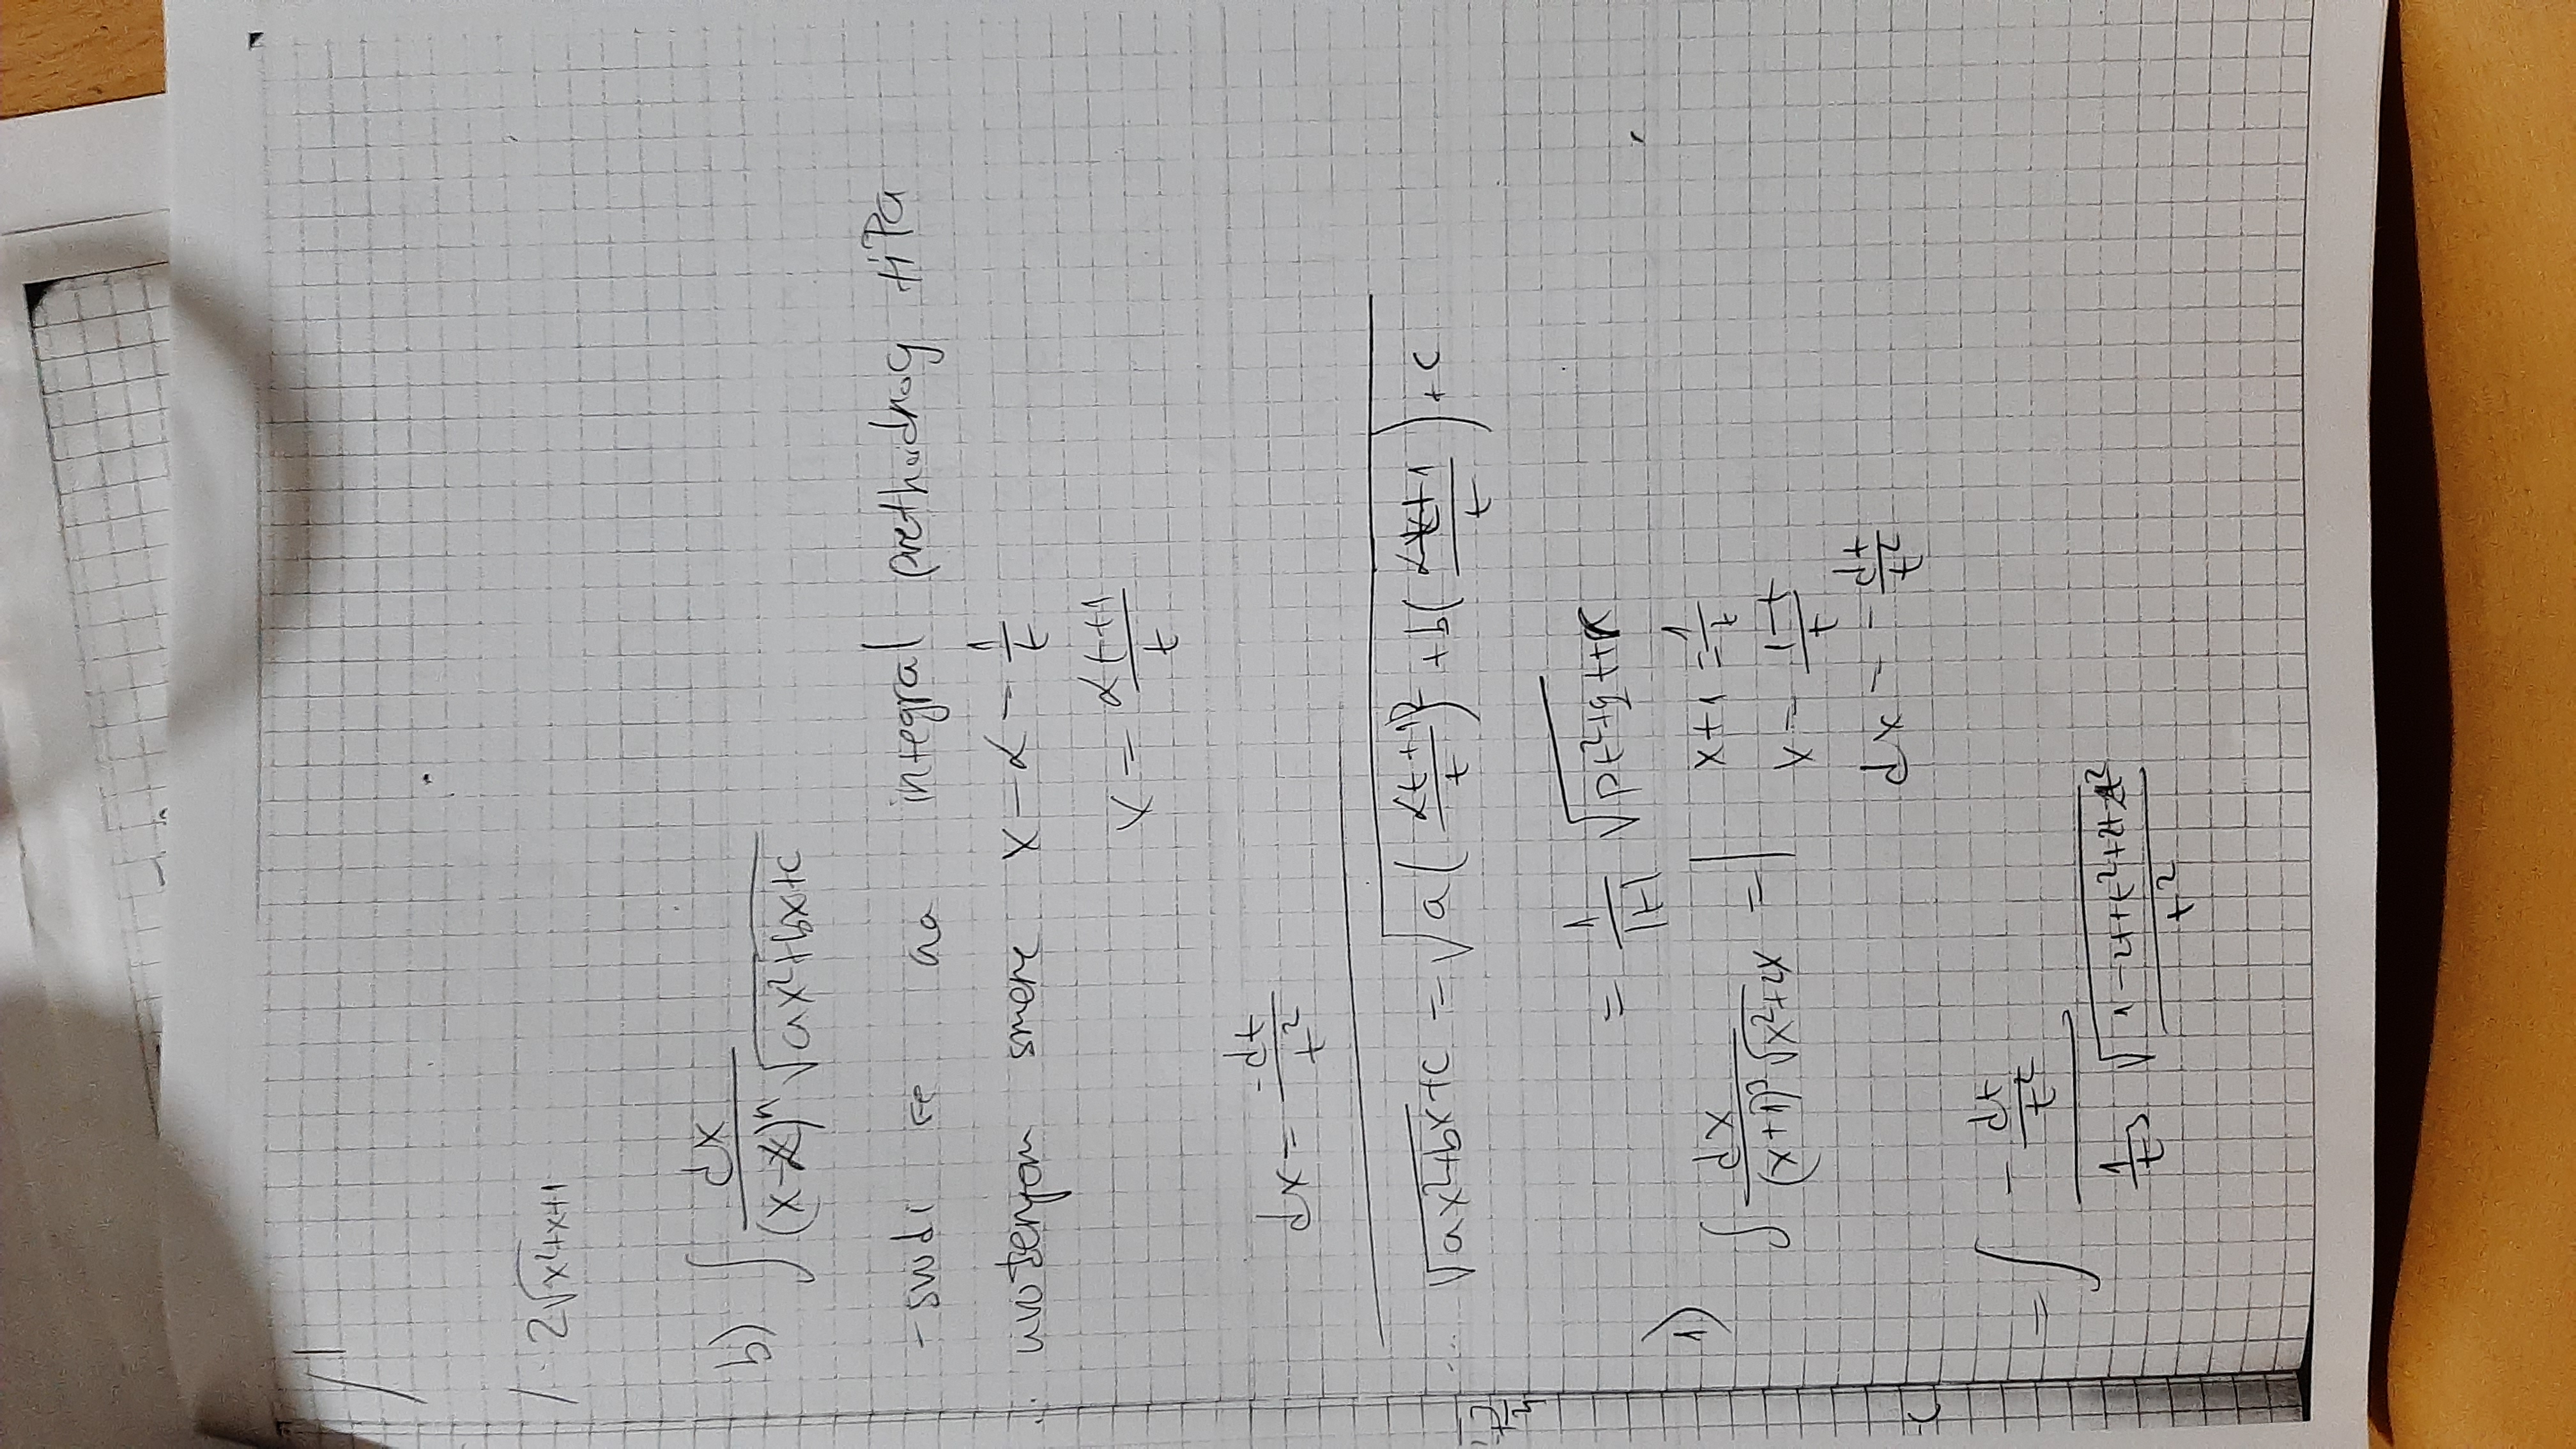 2√x²+x+1
b) ∫ dx / (x-α)ⁿ √ax²+bx+c
- svodi se na integral prethodnog tipa
uvođenjem smene x-α = 1/t
x = αt+1 / t
dx = -dt / t²
√ax²+bx+c = √a(αt+1 / t)² + b(αt+1 / t) + c
= 1/|t| √pt²+qt+r
1) ∫ dx / (x+1)³ √x²+2x = | x+1 = 1/t
x = 1-t / t
dx = - dt / t²
= ∫ - dt/t² / 1/t³ √1-2t+t²+2t-2t² / t²